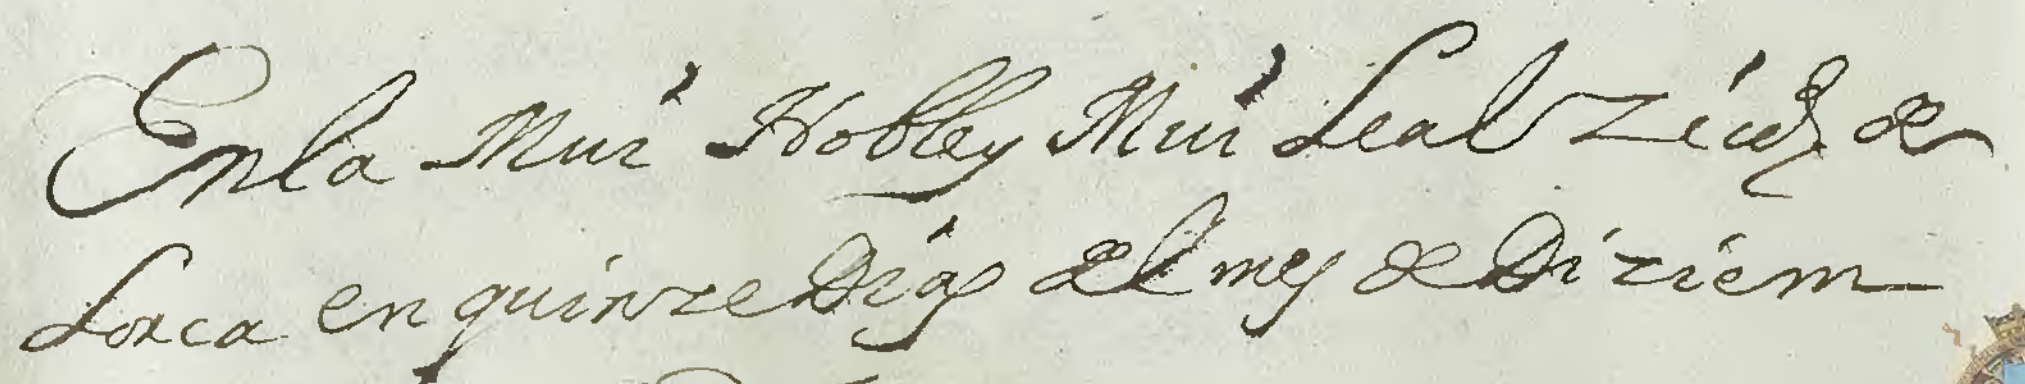 En la Mui Noble y Mui Leal Ziud de
Lorca en quinze Dias del mes de Diziem